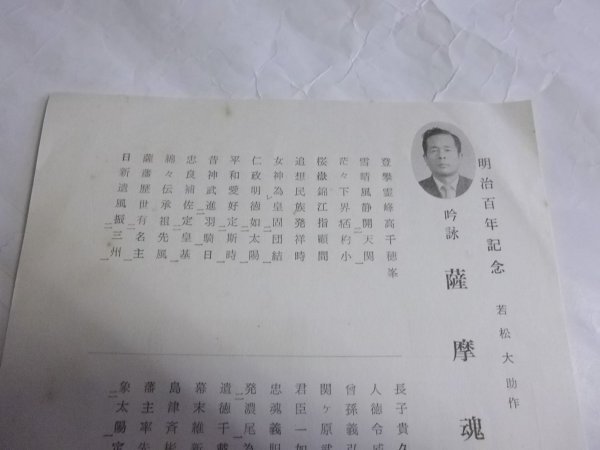 明治百年記念
若松大助作
吟詠
薩摩魂
登攀霊峰高千穂峯
雪晴風静開天関
茫々下界栝杓小
桜嶽錦江指顧間
追想民族発祥時
女神為皇固団結
仁政明徳如太陽
平和愛好定斯時
昔神武進羽騎日
忠良補佐定皇基
綿々伝承祖先風
薩藩歴世有名主
日新遺風振三州
長子貴久
人徳令威
曽孫義弘
関ヶ原武
君臣一如
忠魂義胆
発濃尾為
遺徳千載
幕末維新
島津斉彬
藩主率先
象太陽定